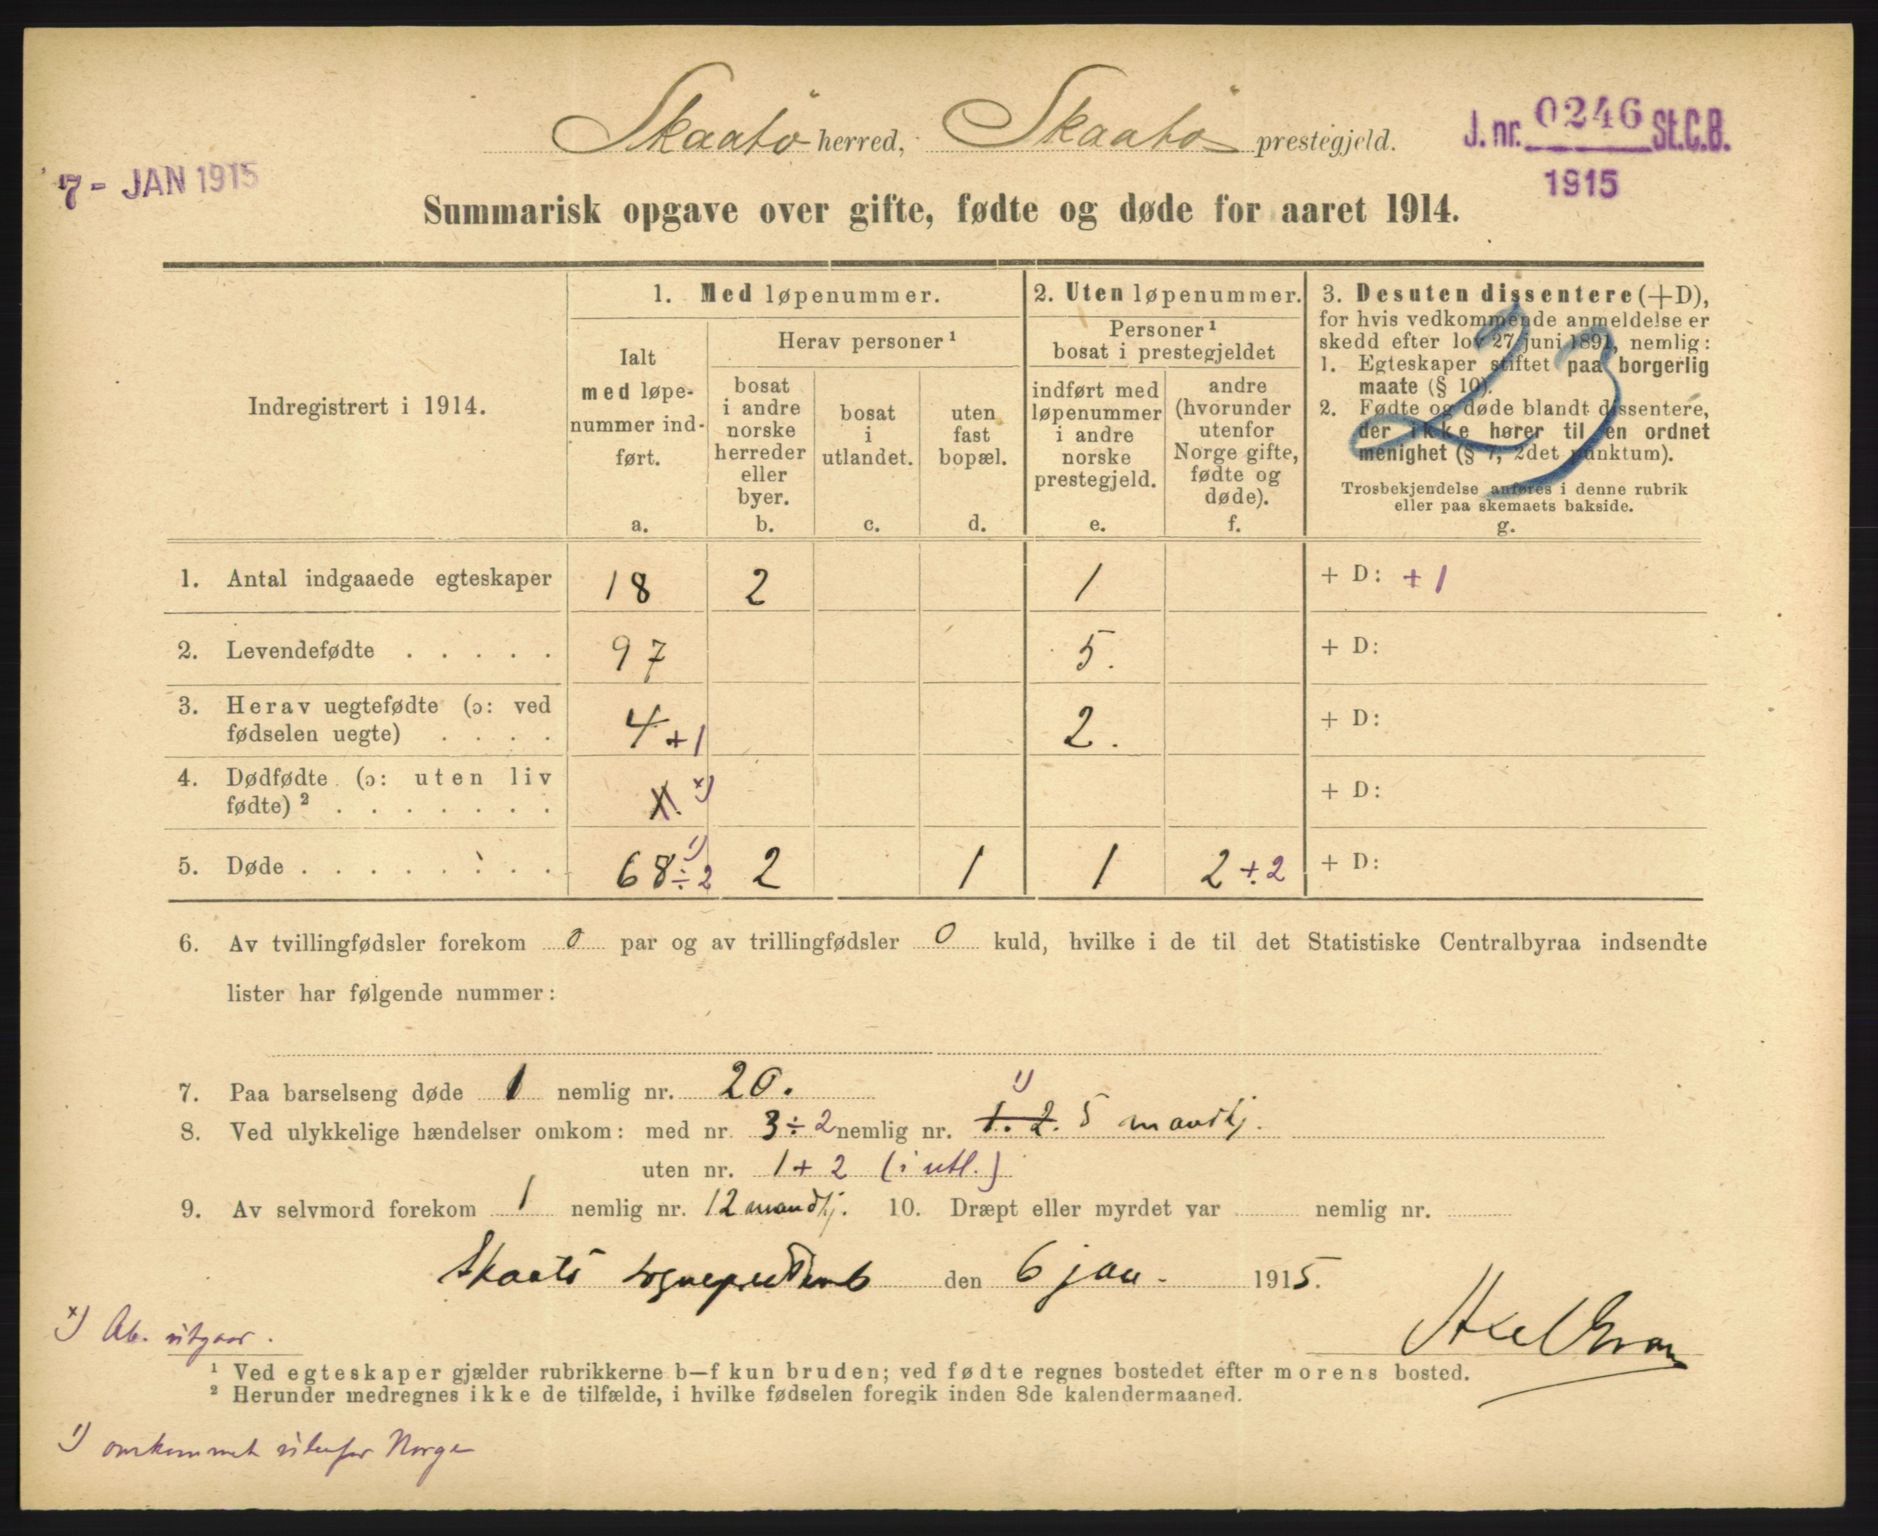 Skaatø herred, Skaatø prestegjeld.
J. nr. 0246 St.C.B.
1915
7 - JAN 1915
Summarisk opgave over gifte, fødte og døde for aaret 1914.
Indregistrert i 1914.
1. Med løpenummer.
Ialt
med løpe-
nummer ind-
ført.
a.
Herav personer ¹
bosat
i andre
norske
herreder
eller
byer.
b.
bosat
i
utlandet.
c.
uten
fast
bopæl.
d.
2. Uten løpenummer.
Personer ¹
bosat i prestegjeldet
indført med
løpenummer
i andre
norske
prestegjeld.
e.
andre
(hvorunder
utenfor
Norge gifte,
fødte og
døde).
f.
3. Desuten dissentere (+D),
for hvis vedkommende anmeldelse er
skedd efter lov 27 juni 1891, nemlig:
1. Egteskaper stiftet paa borgerlig
maate (§ 10).
2. Fødte og døde blandt dissentere,
der ikke hører til en ordnet
menighet (§ 7, 2det punktum).
Trosbekjendelse anføres i denne rubrik
eller paa skemaets bakside.
g.
23
1. Antal indgaaede egteskaper 18 2 1 + D: + 1
2. Levendefødte . . . . . 97 5. + D:
3. Herav uegtefødte (ɔ: ved
fødselen uegte) . . . . 4 + 1 2. + D:
4. Dødfødte (ɔ: uten liv
fødte) ² . . . . . . . x) + D:
5. Døde . . . . . . . 68 ÷ 2 ¹) 2 1 1 2 + 2 + D:
6. Av tvillingfødsler forekom 0 par og av trillingfødsler 0 kuld, hvilke i de til det Statistiske Centralbyraa indsendte
lister har følgende nummer:
7. Paa barselseng døde 1 nemlig nr. 20.
8. Ved ulykkelige hændelser omkom: med nr. 3 ÷ 2 nemlig nr. ¹) 1. 2. 5 mandkj.
uten nr. 1 + 2 (i utl.)
9. Av selvmord forekom 1 nemlig nr. 12 mandkj. 10. Dræpt eller myrdet var nemlig nr.
Skaatø sogneprestemb den 6 jan. 1915.
Axel
x) Ab. utgaar.
¹ Ved egteskaper gjælder rubrikkerne b—f kun bruden; ved fødte regnes bostedet efter morens bosted.
² Herunder medregnes ikke de tilfælde, i hvilke fødselen foregik inden 8de kalendermaaned.
¹) omkommet utenfor Norge